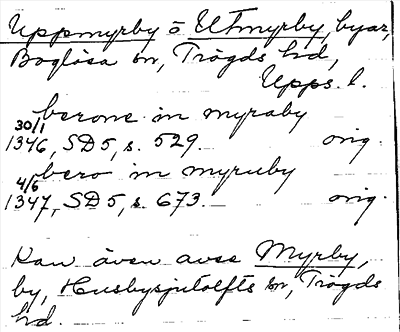 Uppmyrby o Utmyrby, byar,
Boglösa sn, Trögds hd,
Upps. l.
berone in myraby
30/1
1346, SD 5, s. 529. orig.
bero in myruby
4/6
1347, SD 5, s. 673. orig.
Kan även avse Myrby,
by, Husbysjutolfts sn, Trögds
hd.